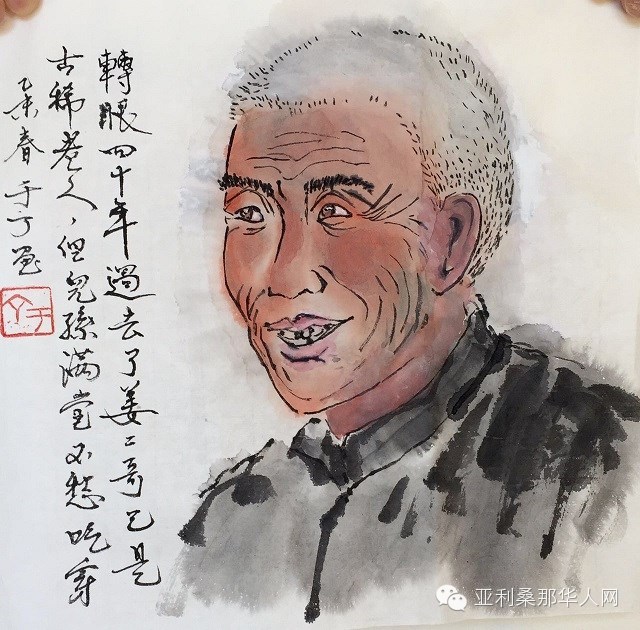 轉眼四十年過去了姜二哥已是
古稀老人，但兒孫满堂不愁吃穿
乙未春 于丁画
亚利桑那华人网